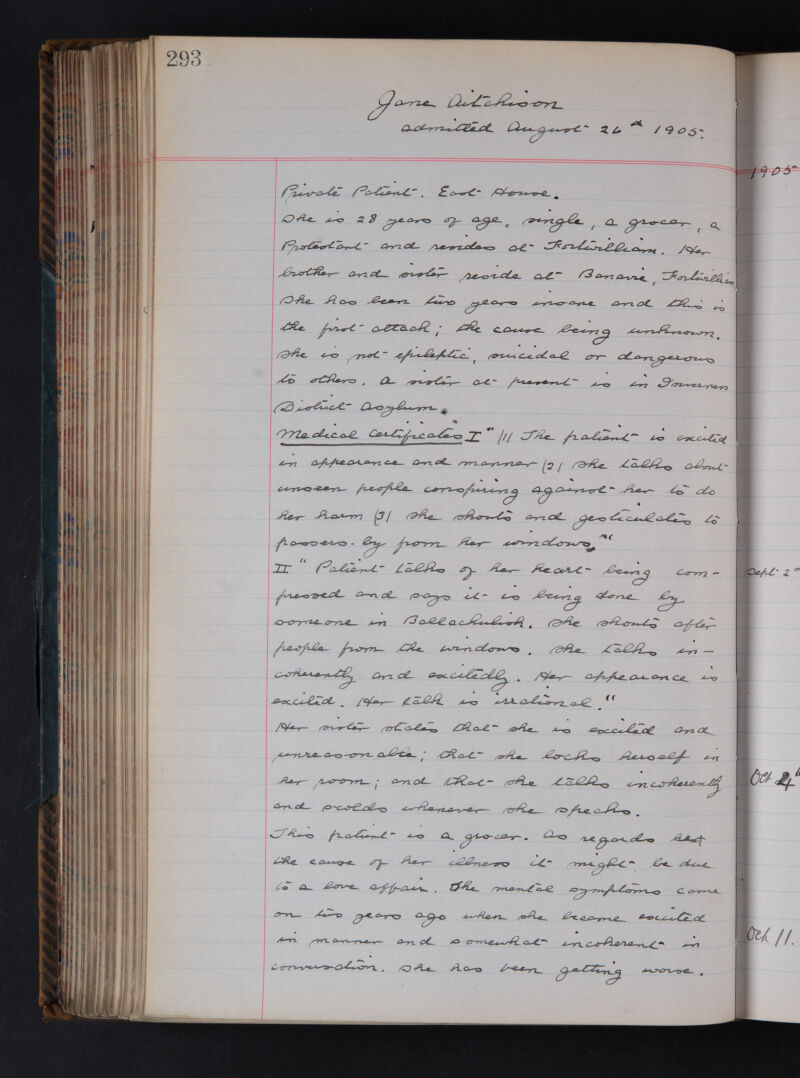 293
Jane Aitchison
admitted August 26th 1905.
Private Patient. East House.
She is 28 years of age, single, a grocer, a
Protestant and resides at Fortwilliam. Her
brother and sister reside at Banavie, Fortwilliam.
She has been two years insane and this is
the first attack; the cause being unknown.
She is not epileptic, suicidal or dangerous
to others. A sister at present is in Inverness
District Asylum.
Medical Certificates I " (1) The patient is excited
in appearance and manner (2) She talks about
unseen people conspiring against her to do
her harm (3) She shouts and gesticulates to
passers-by from her windows."
II " Patient talks of her heart being com-
pressed and says it is being done by
someone in Ballachulish. She shouts after
people from the windows. She talks in-
coherently and excitedly. Her appearance is
excited. Her talk is irrational."
Her sister states that she is excited and
unreasonable; that she locks herself in
her room; and that she talks incoherently
and scolds whenever she speaks.
This patient is a grocer. As regards
the cause of her illness it might be due
to a love affair. The mental symptoms came
on two years ago when she became excited
in manner and somewhat incoherent in
conversation. She has been getting worse.
1905
Sept 2
Oct 4th
Oct 11.